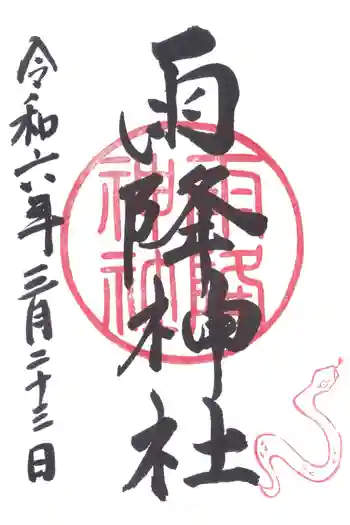 雨降神社
令和六年三月二十三日
雨降
神社